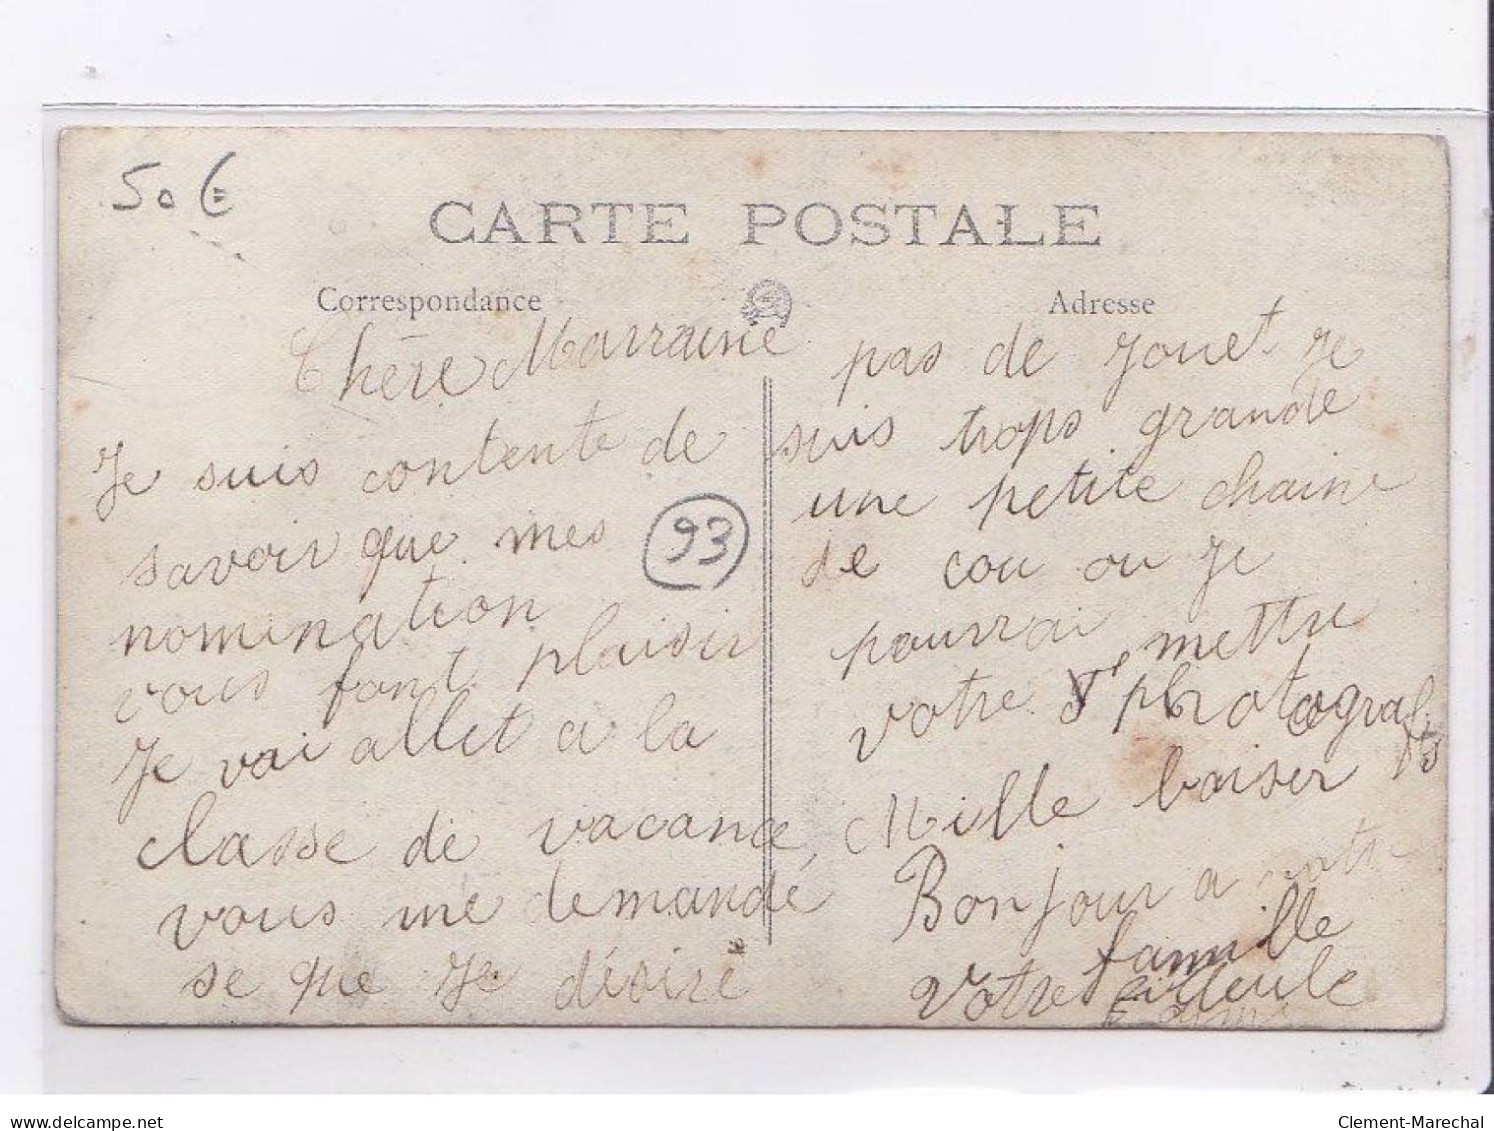 50 €
CARTE POSTALE
Correspondance
Adresse
Chère Marraine
Je suis contente de
savoir que mes
93
nomination
vous font plaisir
Je vai allet a la
classe de vacance,
vous me demandé
se que Je désire
pas de Jouet Je
suis trops grande
une petite chaine
de cou ou Je
pourrai mettre
votre photograf
Mille baiser
Bonjour a votre
famille
Votre filleule
delcampe.net
Clement-Marechal